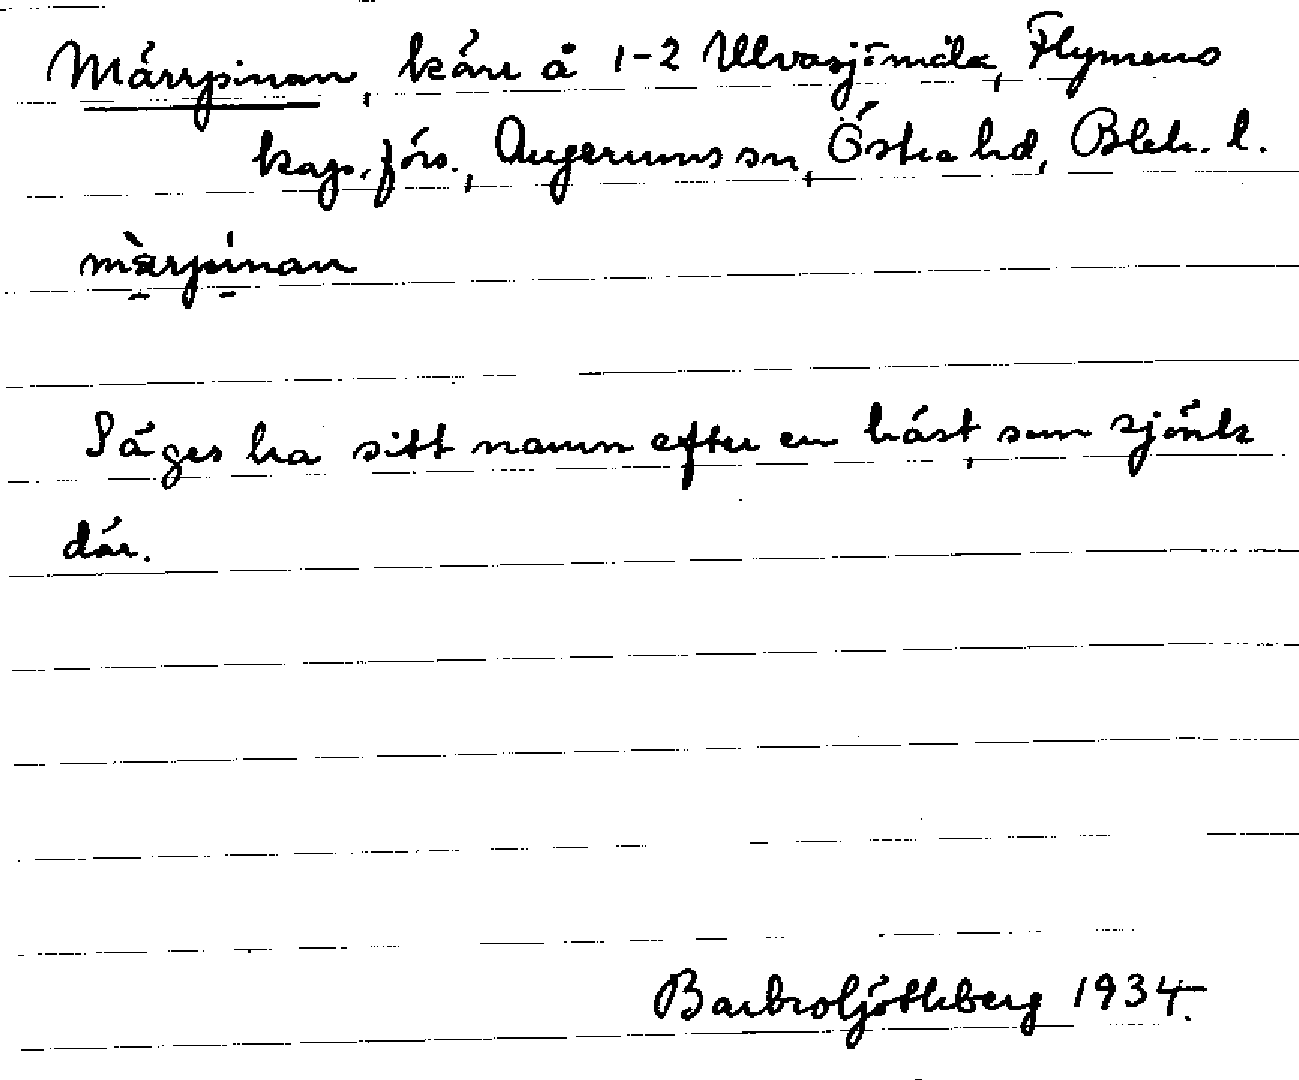 Märrpinan, kärr å 1-2 Ulvasjömåla, Flymens
kap. förs., Augerums sn, Östra hd, Blek. l.
mæ̀rpínan
Säges ha sitt namn efter en häst, som sjönk
där.
Barbro Götleberg 1934.